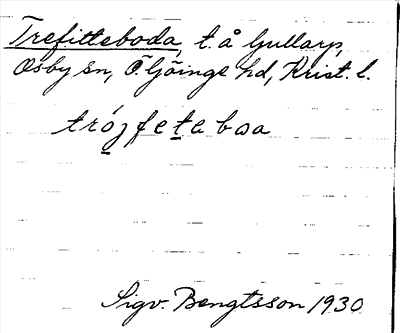 Trefitteboda, t. å Gullarp,
Osby sn, Ö. Göinge hd, Krist. l.
trójfeteboa
Sigv. Bengtsson 1930